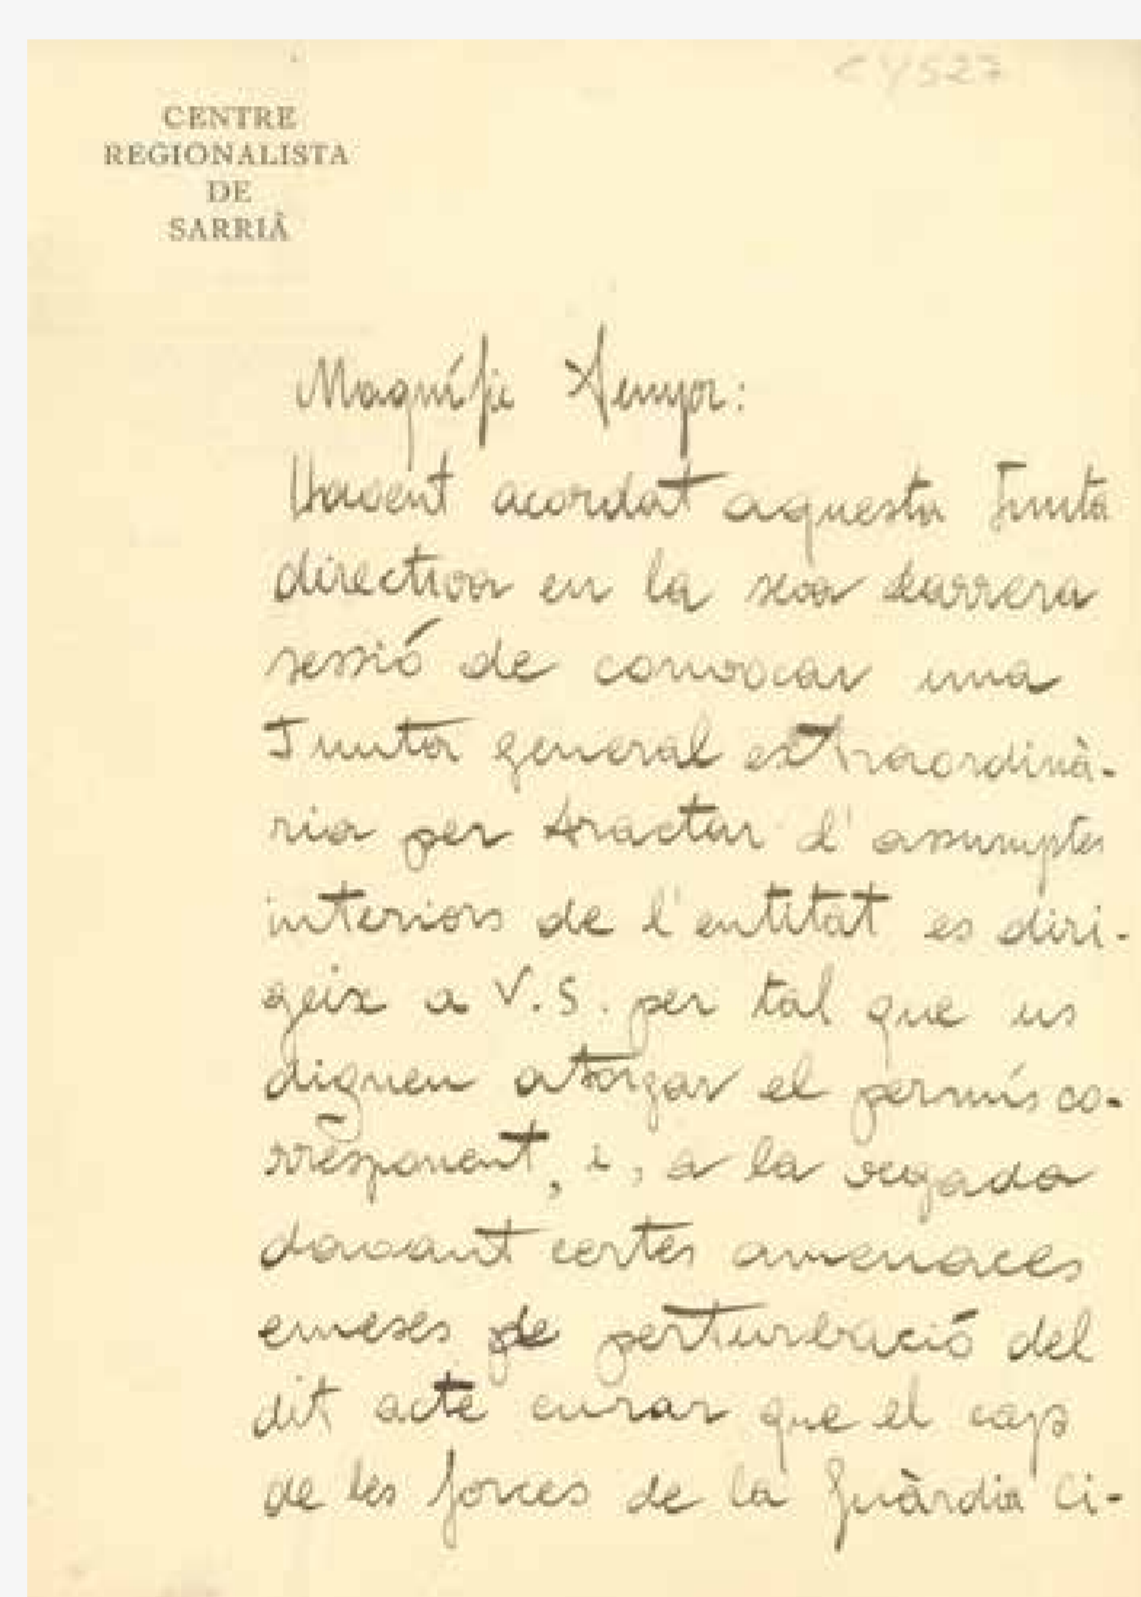 CY527
CENTRE
REGIONALISTA
DE
SARRIÀ
Magnífic Senyor:
Havent acordat aquesta Junta
directiva en la seva darrera
sessió de convocar una
Junta general extraordinà-
ria per tractar d'assumptes
interiors de l'entitat es diri-
geix a V.S. per tal que us
digneu atorgar el permís co-
rresponent, i, a la vegada
davant certes amenaces
emeses de perturbació del
dit acte curar que el cap
de les forces de la Guàrdia Ci-